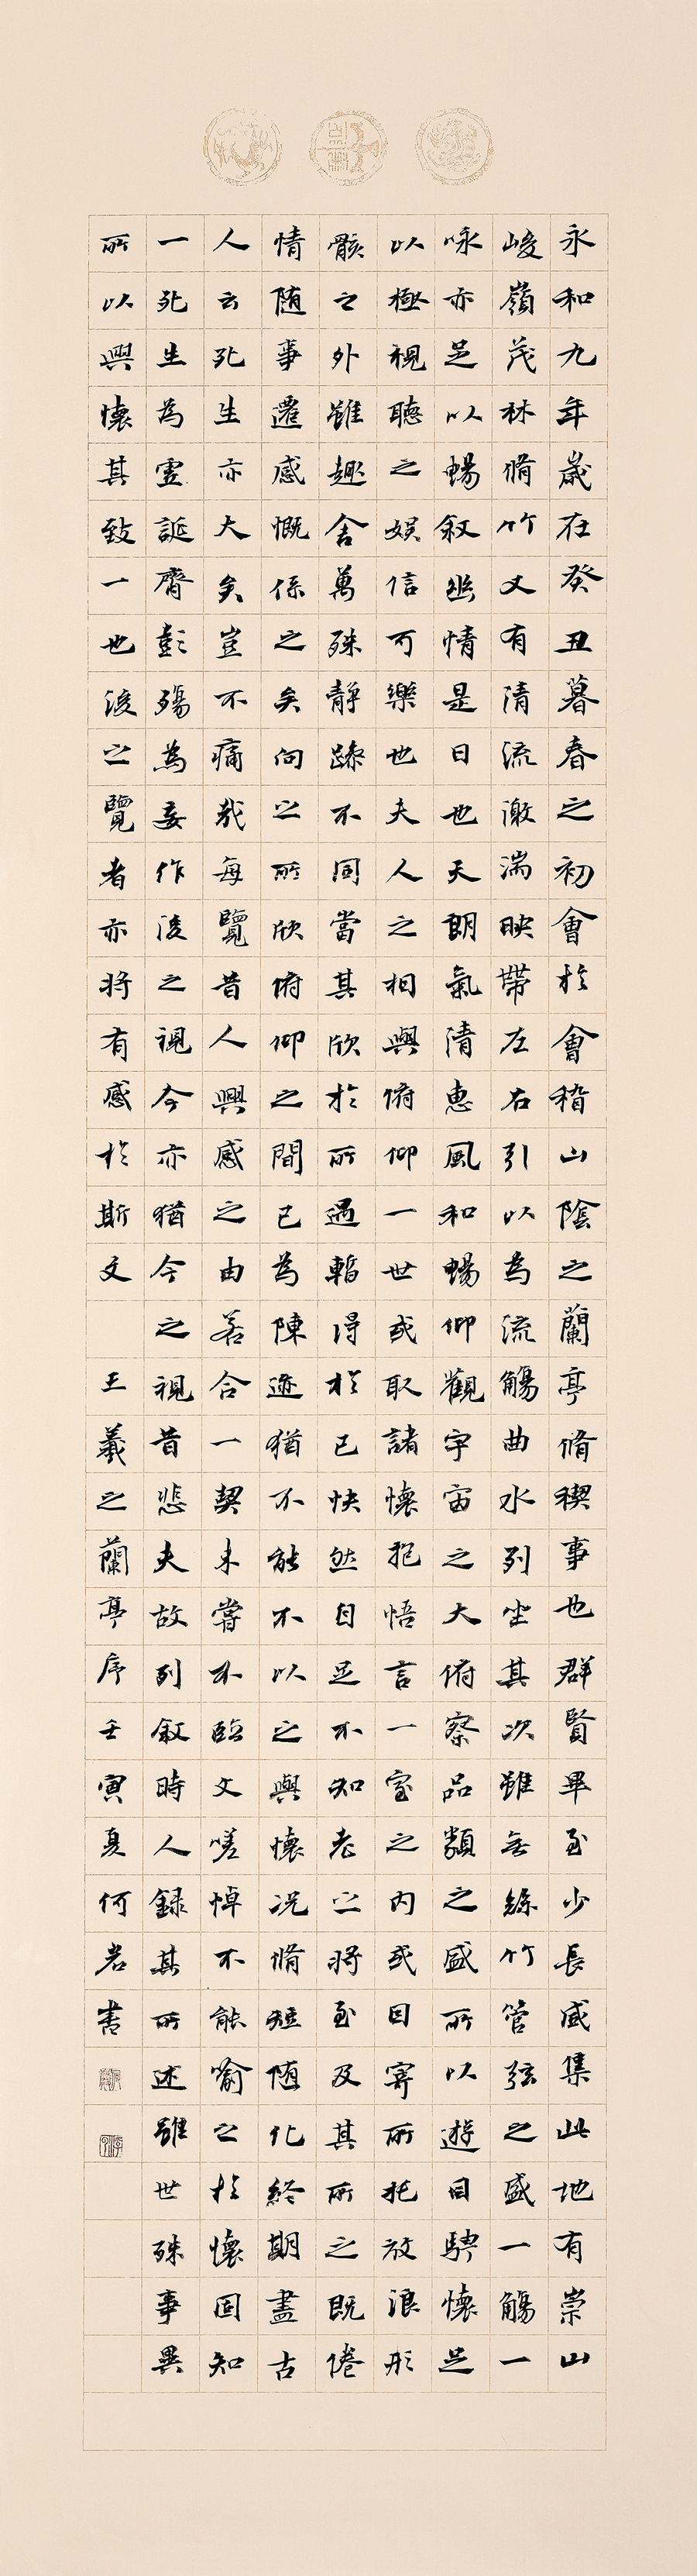 永和九年歲在癸丑暮春之初會於會稽山陰之蘭亭脩稧事也群賢畢至少長咸集此地有崇山
峻嶺茂林脩竹又有清流激湍映帶左右引以為流觴曲水列坐其次雖無絲竹管弦之盛一觴一
咏亦足以暢叙幽情是日也天朗氣清惠風和暢仰觀宇宙之大俯察品類之盛所以遊目騁懷足
以極視聽之娛信可樂也夫人之相與俯仰一世或取諸懷抱悟言一室之內或因寄所托放浪形
骸之外雖趣舍萬殊靜躁不同當其欣於所遇暫得於己快然自足不知老之將至及其所之既倦
情随事遷感慨係之矣向之所欣俯仰之間已為陳迹猶不能不以之興懷況脩短随化終期盡古
人云死生亦大矣豈不痛哉每覽昔人興感之由若合一契未嘗不臨文嗟悼不能喻之於懷固知
一死生為虛誕齊彭殤為妄作後之視今亦猶今之視昔悲夫故列叙時人錄其所述雖世殊事異
所以興懷其致一也後之覽者亦將有感於斯文 王羲之蘭亭序壬寅夏何書